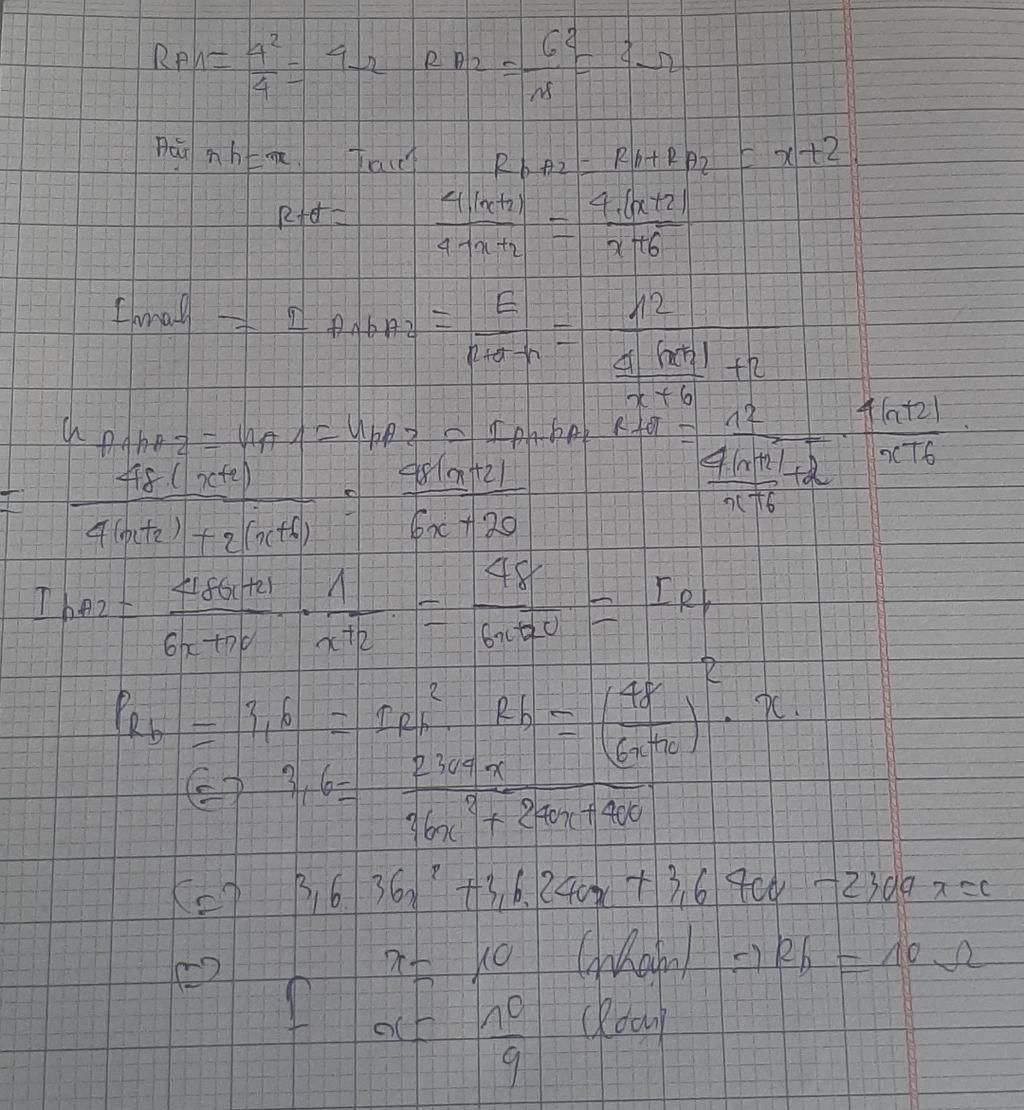 RĐ1 = 4²/4 = 4Ω RĐ2 = 6²/18 = 2Ω
Đặt Rb = x. Ta có RbĐ2 = Rb + RĐ2 = x+2
Rtđ = 4.(x+2)/4+x+2 = 4.(x+2)/x+6
Imạch = I Đ1bĐ2 = E/Rtđ+r = 12/(4(x+2)/x+6 + 2)
U Đ1bĐ2 = UĐ1 = UbĐ2 = IĐ1bĐ2 Rtđ = 12/(4(x+2)/x+6 + 2) . 4(x+2)/x+6
= 48.(x+2)/4(x+2)+2(x+6) = 48(x+2)/6x+20
IbĐ2 = 48(x+2)/6x+20 . 1/x+2 = 48/6x+20 = IRb
PRb = 3,6 = IRb². Rb = (48/6x+20)² . x.
(=) 3,6 = 2304x/36x²+240x+400
(=) 3,6. 36x² + 3,6.240x + 3,6 400 - 2304x = 0
(=) [ x = 10 (nhận) → Rb = 10Ω
x = 10/9 (loại)